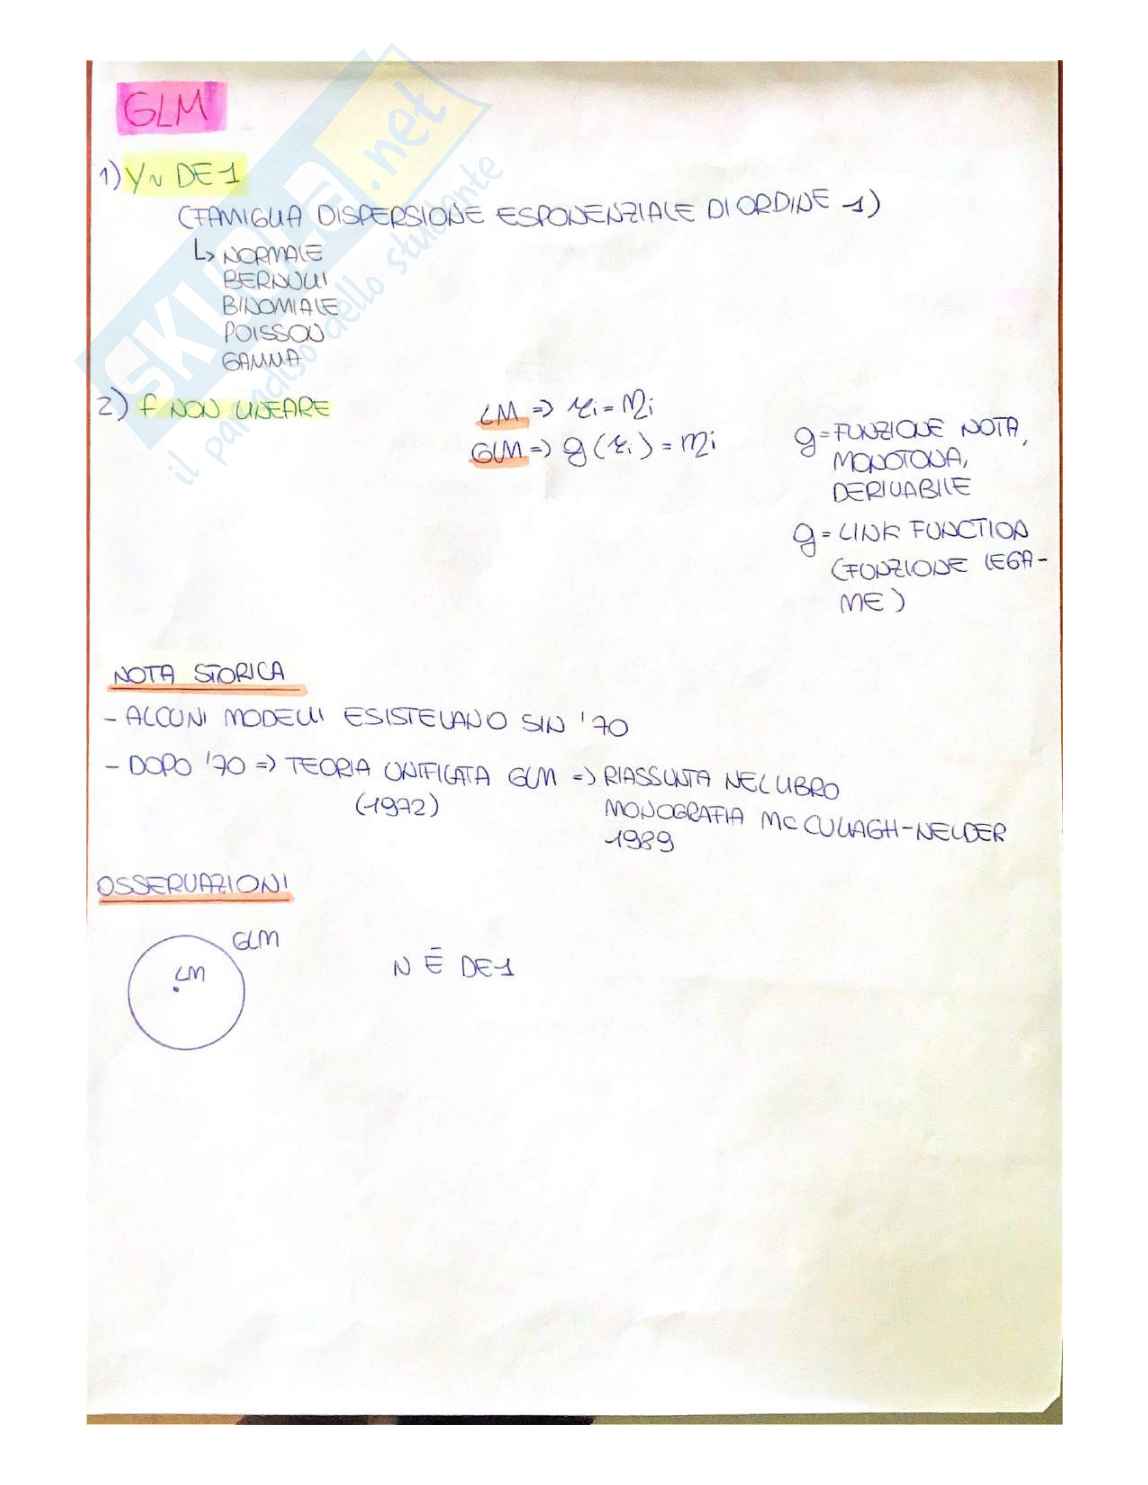 GLM
1) Y ~ DE1
(FAMIGLIA DISPERSIONE ESPONENZIALE DI ORDINE 1)
↳ NORMALE
BERNULLI
BINOMIALE
POISSON
GAMMA
2) f NON LINEARE
LM => μi = ηi
GLM => g(μi) = ηi
g = FUNZIONE NOTA,
MONOTONA,
DERIVABILE
g = LINK FUNCTION
(FUNZIONE LEGA-
ME)
NOTA STORICA
- ALCUNI MODELLI ESISTEVANO SIN '70
- DOPO '70 => TEORIA UNIFICATA GLM => RIASSUNTA NEL LIBRO
(1972)
MONOGRAFIA MC CULLAGH-NELDER
1989
OSSERVAZIONI
GLM
LM
N È DE1
SKUOLA.net
il paradiso dello studente